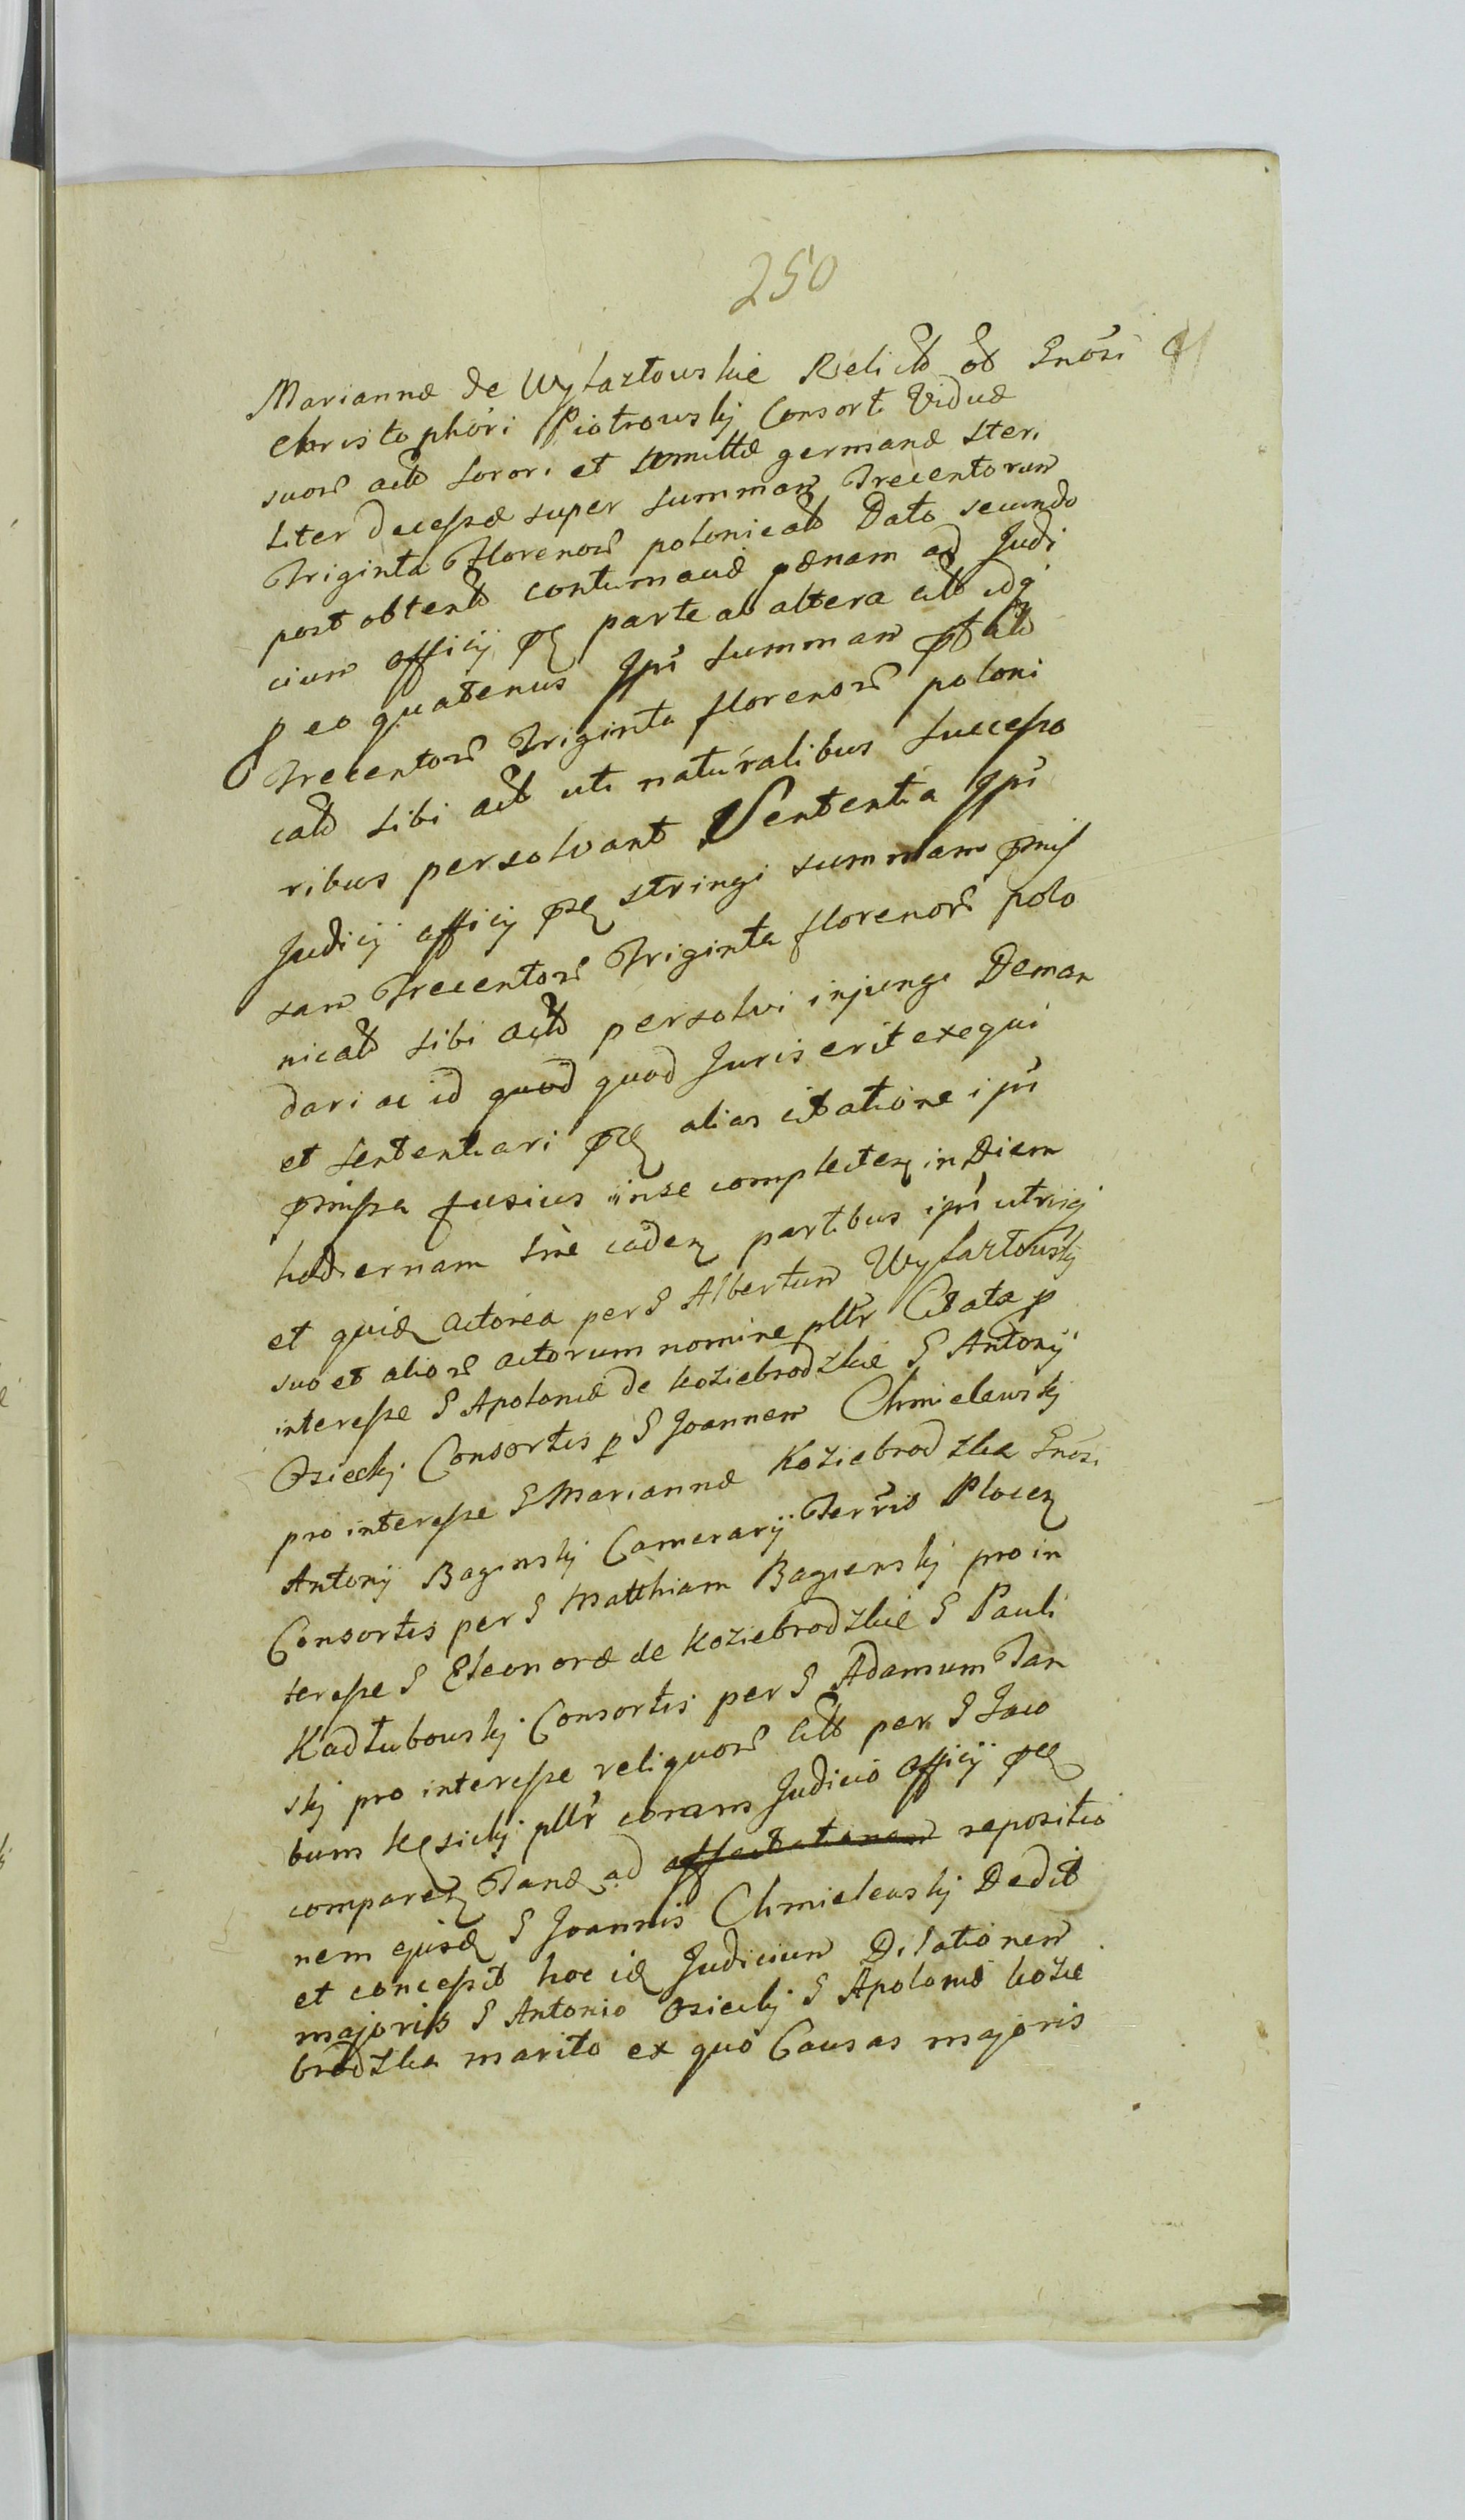 250
Mariannæ de Wyłaztowskie Relictæ ol Gnosi
Christophori Piotrowskj Consorti Viduæ
suor act sorori et Semittæ germanæ steri
liter decessæ super summam Trecentorum
Triginta Florenor polonical Dato secundo
post obtent contumaciæ pænam ad Judi
cium officij parte ab altera cit idq
p eo quatenus Ipsi summam
Trecentor Triginta florenor poloni
cal sibi act uti naturalibus Successo
ribus persolvant Sententia Ipsi
Judicij officij stringi summam pmis
sam Trecentor Triginta florenor polo
nical sibi act persolvi injungi Deman
dari ac id quod quod Juris erit exequi
et sententiari alias citatione ipsi
pmissa fusius in se complecten in Diem
hodiernam sine caden partibus ipsi utrisq
et quid actorea per G Albertum Wyłaztowskj
suo et alior actorum nomine pllr Citata p
interesse G Apoloniæ de Koziebrodzkie G Antonij
Osieckj Consortis p G Joannem Chmielewskj
pro interesse G Mariannæ Koziebrodzka Gnosi
Antonij Baginskj Camerarij Terris Plocen
Consortis per G Matthiam Bagienskj pro in
teresse G Eleonoræ de Koziebrodzkie G Pauli
Kadłubowskj Consortis per G Adamum Jan
skj pro interesse reliquor Cit per G Jaco
bum Kęsickj pllr coram Judicio officij
comparen Tand ad affectationem repositio
nem ejusd G Joannis Chmielewskj Dedit
et concessit hoc id Judicium Dilationem
majoris G Antonio Osieckj G Apoloniæ Kozie
brodzka marito ex quo Causas majoris